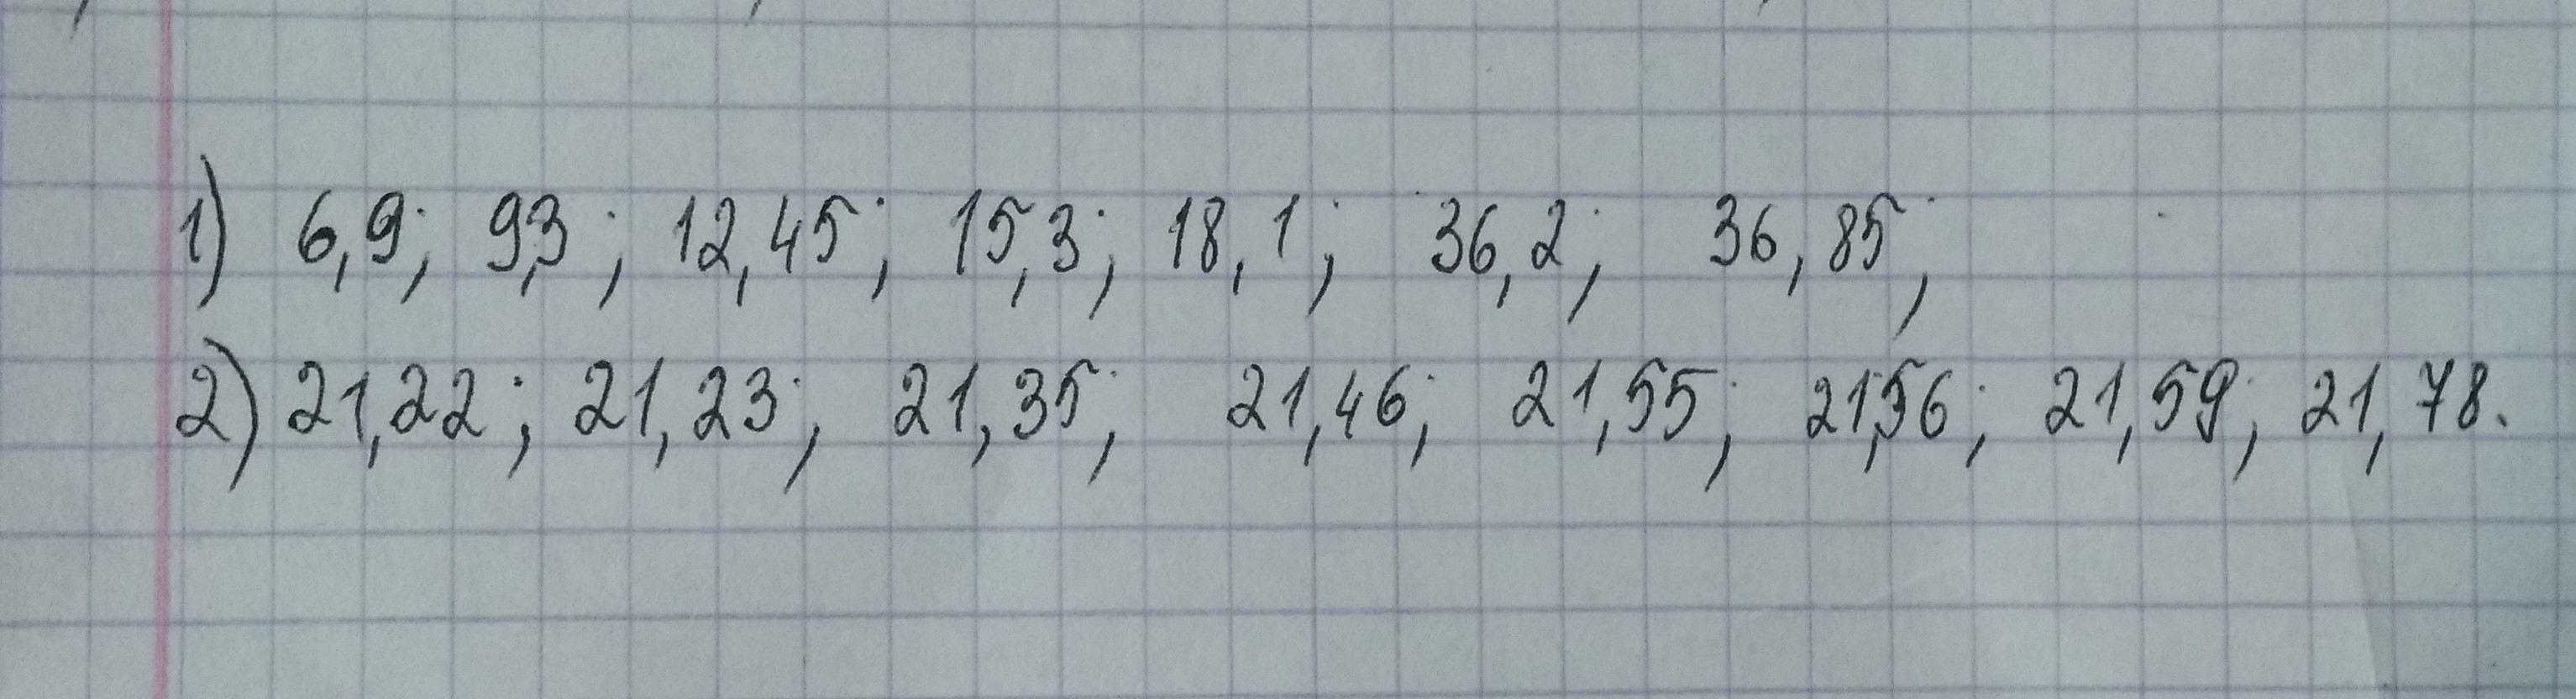 1) 6,9; 9,3; 12,45; 15,3; 18,1; 36,2; 36,85;
2) 21,22; 21,23; 21,35; 21,46; 21,55; 21,56; 21,59; 21,78.